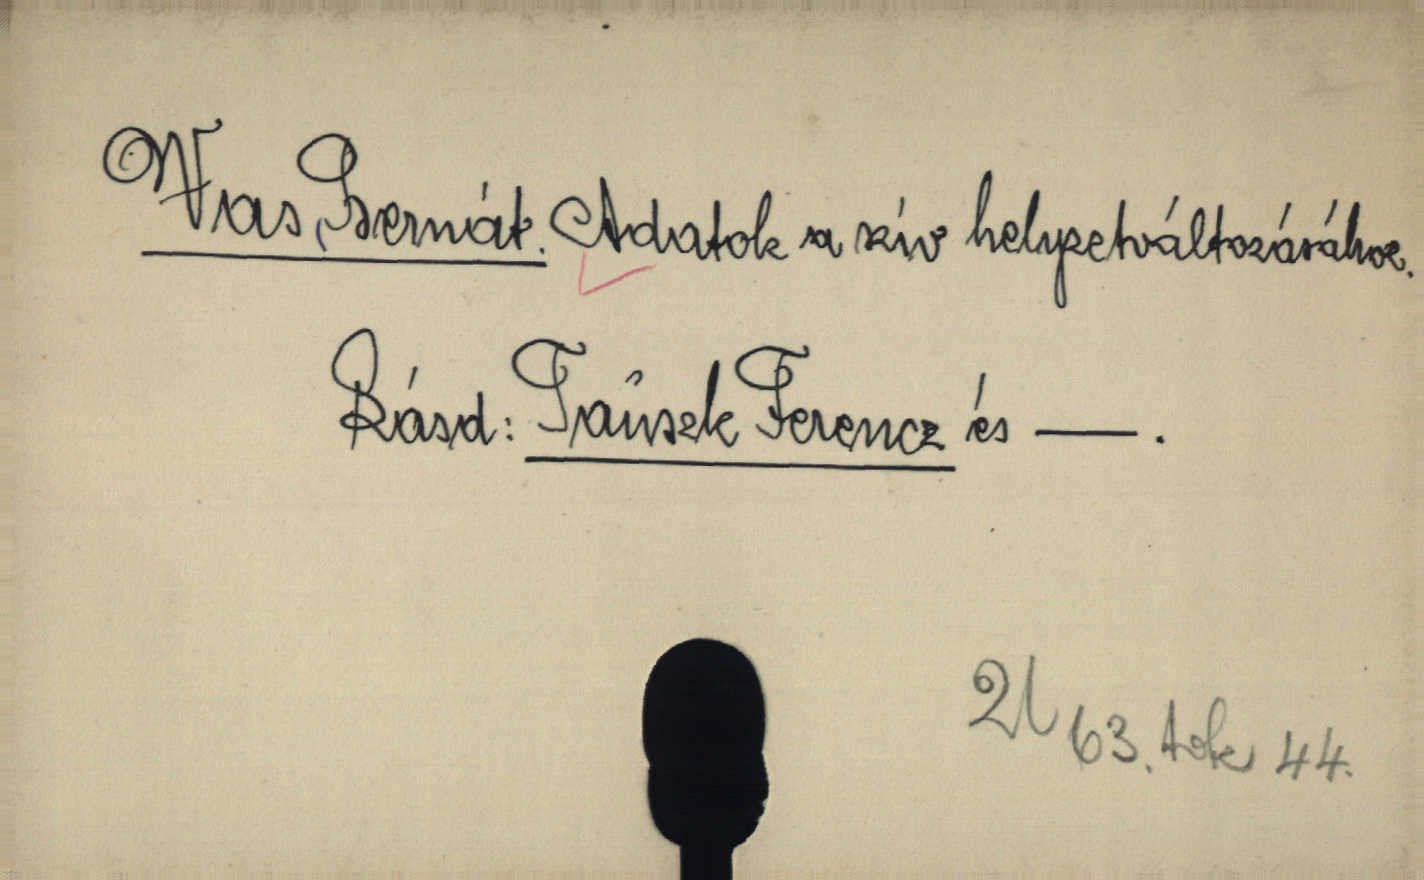 Vas, Bernát. Adatok a szív helyzetváltozásához.
Lásd: Tauszk Ferencz és —.
A 63. tok 44.